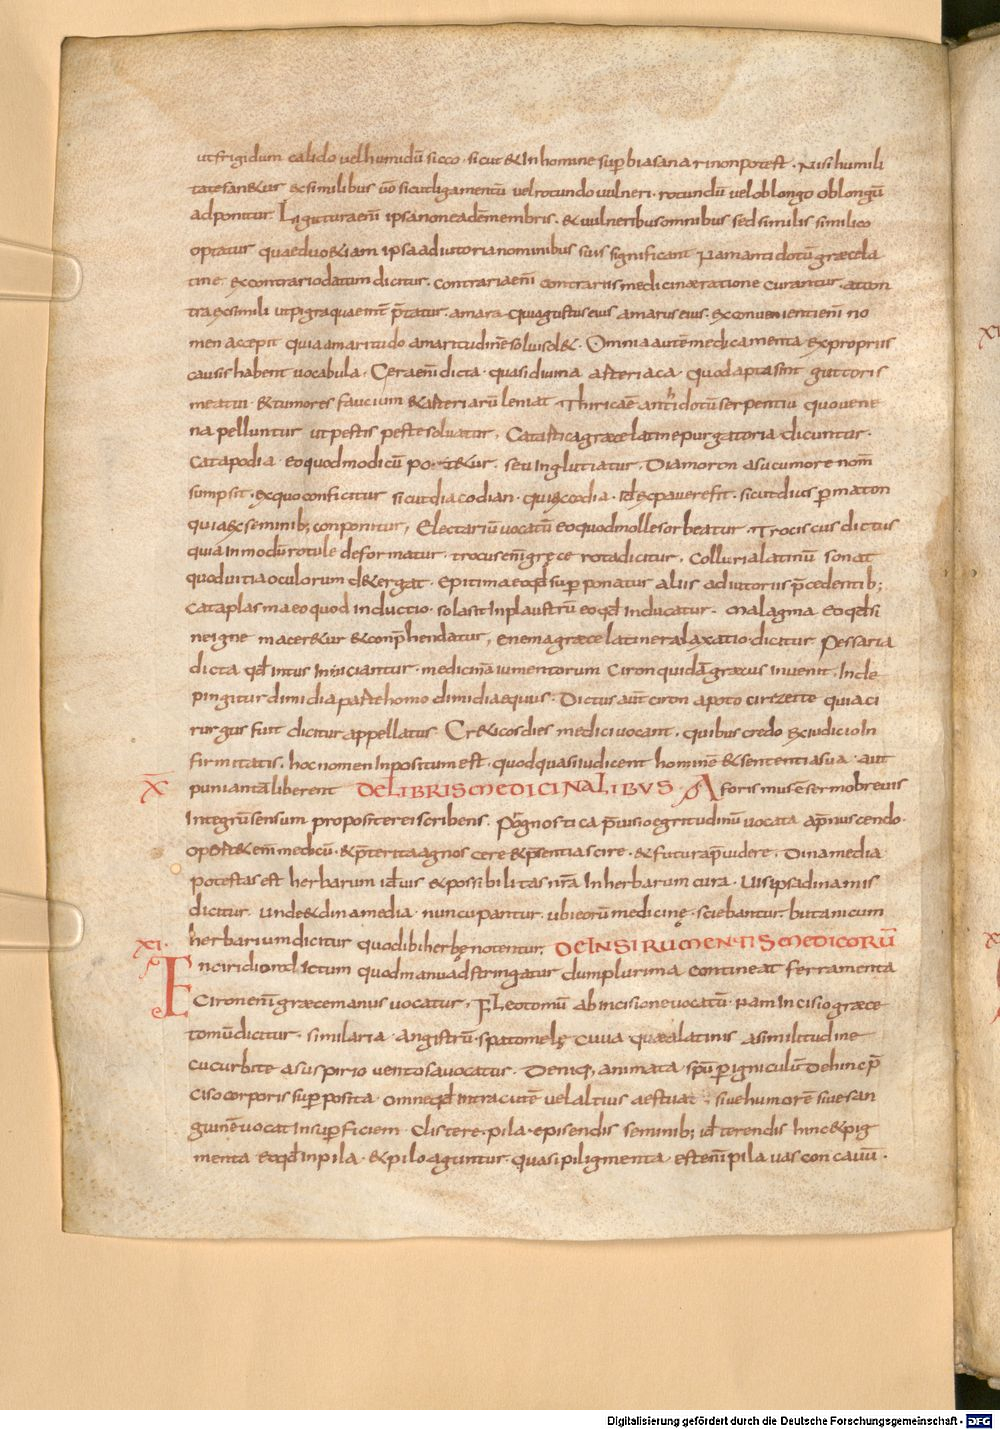 ut frigidum calido vel humidū sicco · sicut & in homine supbia sanari non potest · Nisi humili
tate san&ur ex similibus ūo sicut ligamentū vel rotundo vulneri · rotundū vel oblongo oblongū
adponitur Ligitura enī ipsa non eadē membris · & vulneribus omnibus sed similis simili co
optatur quae duo &iam ipsa adiutoria nominibus suis significant Nam antidotū græce la
tine ex contrario datum dicitur · contraria enī contrariis medicinæ ratione curantur · at con
tra ex simili ut pigra quae int̄ pr̄tatur · amara quia gustus eius amarus eius · ex convenienti enī no
men accepit quia amaritudo amaritudinē solui sol& · Omnia autē medicamenta ex propriis
causis habent vocabula · Cera enī dicta · quasi diuina asteriaca · quod apta sint gutturis
meatui · & tumores faucium & asteriarū leniat Thiricāe antidotū serpentiū quo vene
na pelluntur ut pestis peste soluatur · Catastica græce latine purgatoria dicuntur ·
Catapodia · eo quod modicū po &ur · seu inglutiatur · Diamoron a sucu more nom̄
sumpsit · ex quo conficitur sicut diacodian · quia ex codia · id ex pavere fit · sicut diuspmaton
quia ex seminib; conponitur, Electariū vocatū eo quod molle sorbeatur · Trociscus dictus
quia in modū rotule deformatur · trocus enī gręce rota dicitur · Colluria latinū sonat
quod vitia oculorum d&ergat · Epitima eo qđ supponatur aliis adiutoriis p̄cedentib;
Cataplasma eo quod inductio · sola sit In plaustrū eo qđ inducatur · malagma eo qđ si
ne igne macer&ur & conp̄hendatur, enema græce latine ralaxatio dicitur Pessaria
dicta qđ intus iniciantur · medicinā iumentorum Ciron quidā græcus invenit · Inde
pingitur dimidia parte homo dimidia equus · Dictus aūt ciron apoto cirezette quia ci
rurgus fuit dicitur appellatus Cr&icos dies medici vocant · quibus credo ex iudicio in
firmitatis · hoc nomen inpositum est · quod quasi iudicent hominē & sententia sua · aut
X̄ puniant aut liberent DE LIBRIS MEDICINALIBVS · Aforismus ē sermo breuis
Integrū sensum proposite rei scribens. Prognostica p̄uisio egritudinū vocata ap̄nuscendo ·
oportet enī medicū · & p̄terita agnoscere & p̄sentia scire · & futura p̄uidere · Dinamedia
potestas est herbarum id vis & possibilitas nr̄a In herbarum cura · Vis ipsa dinamis
dicitur · unde & dinamedia · nuncupantur · ubi eorū medicinę · sciebantur · butanicum
XI · herbarium dicitur quod ibi herbę notentur · DE INSTRUMENTIS MEDICORŪ
Enciridion dictum quod manu adstringatur dum plurima contineat ferramenta
Ciron enī græce manus vocatur · Fleotomū ab incisione vocatū · Nam incisio græce
tomū dicitur · similaria · angistrū · spatomelę Cuua quæ a latinis a similitudine
cucurbite a suspirio ventosa vocatur · Deniq; animata spū p igniculū Dehinc p̄
ciso corporis supposita omne qđ intra cutē vel altius aestuat · sive humorē sive san
guinē vocat in supficiem · Clistere · pila · epi sendis seminib; id terendis hinc & pig
menta eo qđ in pila & pilo aguntur quasi piligmenta est enī pila vas concauū ·
Digitalisierung gefördert durch die Deutsche Forschungsgemeinschaft - DFG